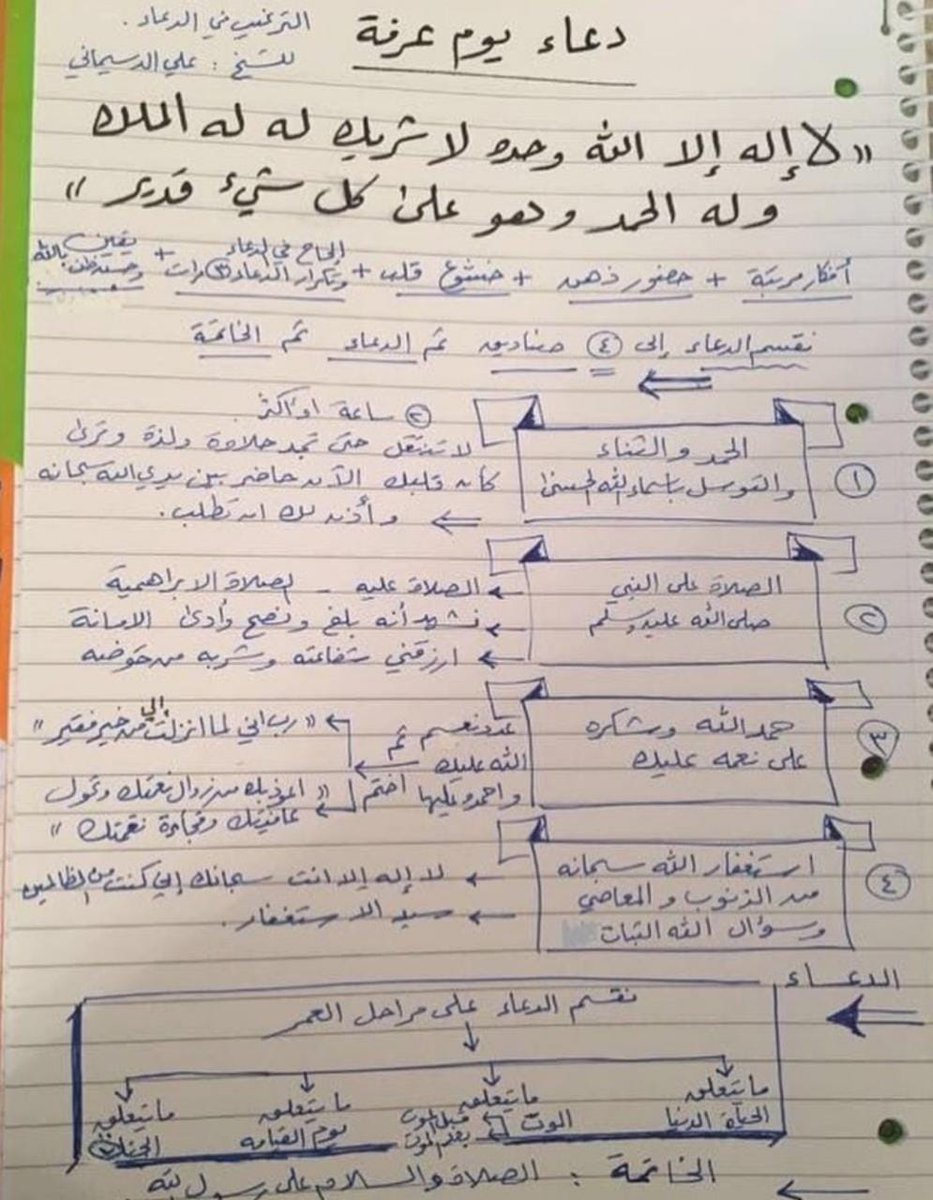 دعاء يوم عرفة
الترغيب في الدعاء.
للشيخ : علي الدسيماني
« لا إله إلا الله وحده لا شريك له له الملك
وله الحمد وهو على كل شيء قدير »
أفكار مرتبة + حضور ذهن + خشوع قلب + إلحاح في الدعاء وتكرار الدعاء ٣ مرات + يقين وحسن ظن بالله
نقسم الدعاء إلى ٤ صناديق ثم الدعاء ثم الخاتمة
١
الحمد والثناء
والتوسل بأسماء الله الحسنى
ساعة او أكثر
لا تنتقل حتى تجد حلاوة ولذة وترى
كأن قلبك الآن حاضر بين يدي الله سبحانه
وأذن لك ان تطلب.
٢
الصلاة على النبي
صلى الله عليه وسلم
الصلاة عليه - لصلاة الابراهمية
نشهد أنه بلغ ونصح وأدى الامانة
ارزقني شفاعته وشربه من حوضه
٣
حمد الله وشكره
على نعمه عليك
عدد نعم الله عليك
واحمده عليها
ثم اختم
« رب اني لما انزلت إلي من خير فقير »
« اعوذ بك من زوال نعمتك وتحول
عافيتك وفجاءة نقمتك »
٤
استغفار الله سبحانه
من الذنوب و المعاصي
وسؤال الله الثبات
لا إله إلا انت سبحانك إني كنت من الظالمين
سيد الاستغفار.
الدعاء
نقسم الدعاء على مراحل العمر
ما يتعلق الحياة الدنيا
ما يتعلق الموت قبل الموت بعد الموت
ما يتعلق يوم القيامه
ما يتعلق الجنة
الخاتمة : الصلاة والسلام على رسول الله